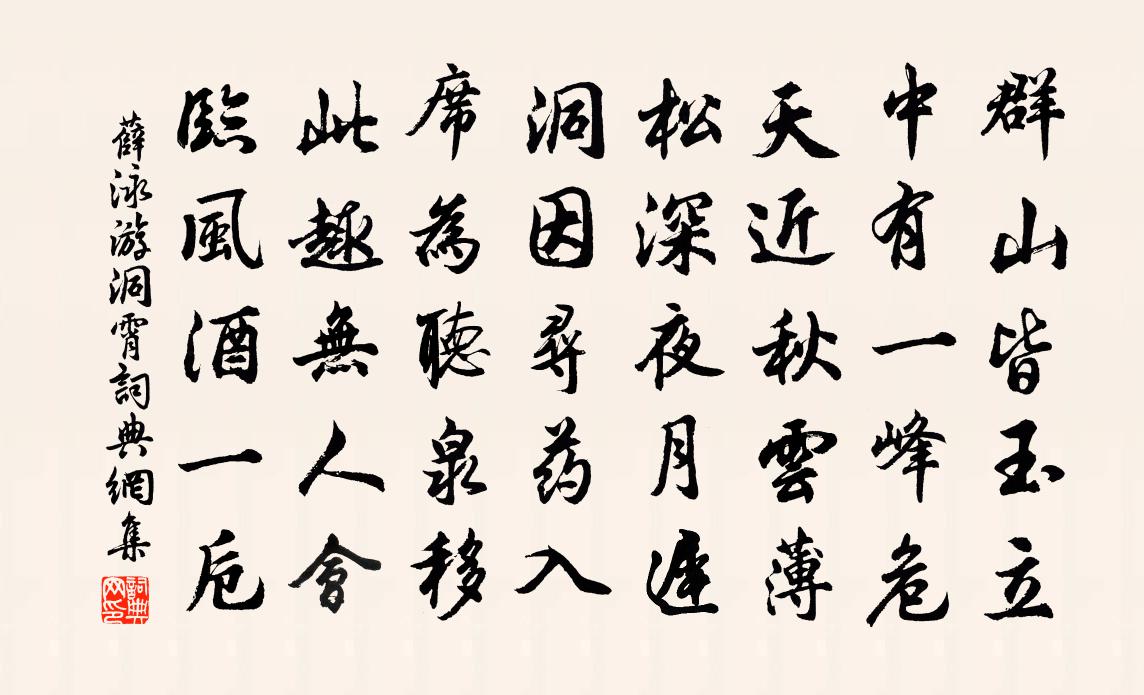 群山皆玉立
中有一峰危
天近秋雲薄
松深夜月遲
洞因尋药入
席為聽泉移
此趣無人會
臨風酒一卮
薛泳游洞霄詞典網集
詞典网印